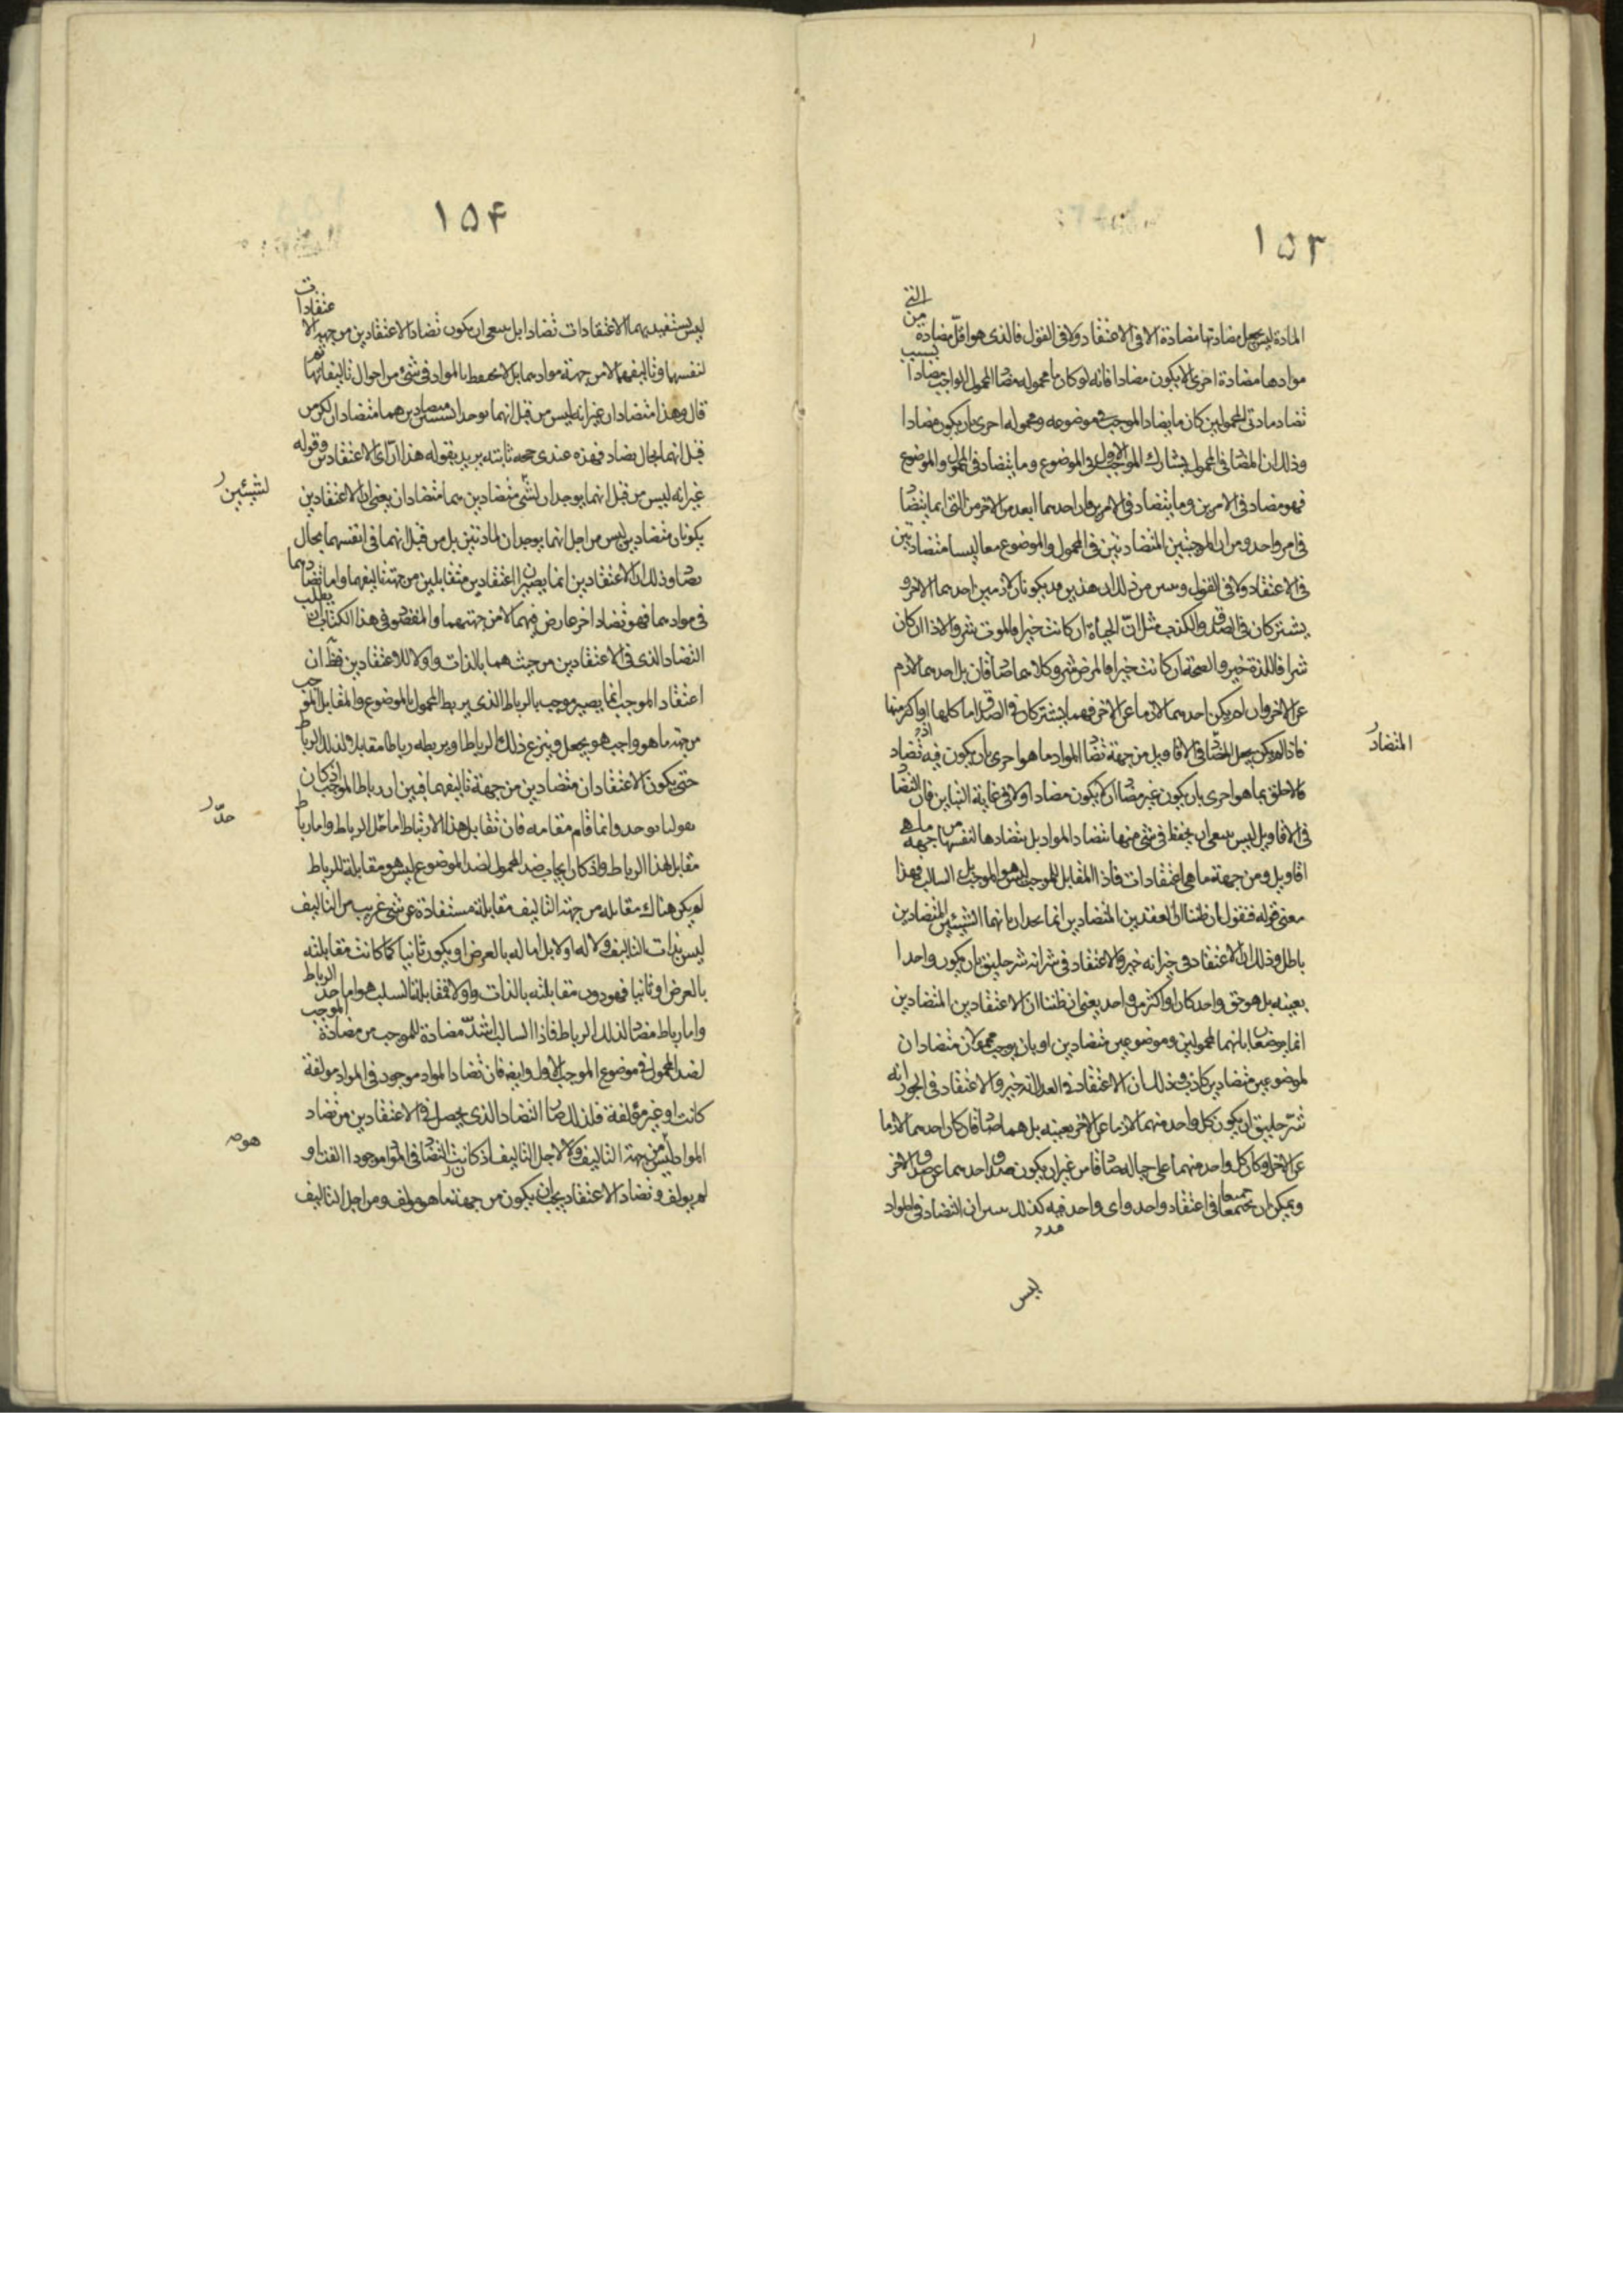 ١٥٣
التى من
المادة ليس يجعل مضادتها مضادة الا فى الاعتقاد ولا فى القول فالذى هو اقل مضادة
بسبب
موادها مضادة احرى الا يكون مضادا فانه لو كان ما محموله مضاد المحمول الواجب مضادا
تضاد مادتى المحمولين كان ما يضاد الموجب فى موضوعه ومحموله احرى بان يكون مضادا
وذلك ان المضاد فى المحمول يشارك الموجب الاول فى الموضوع وما يتضاد فى المحمول والموضوع
فهو مضاد فى الامرين وما يتضاد فى الامرين فان احدهما ابعد من الاخر من التى انما يتضاد
فى امر واحد ومن ان الموجبتين المتضادتين فى المحمول والموضوع معا ليستا متضادتين
فى الاعتقاد ولا فى القول من ذلك ان هذين قد يكونان لازمين احدهما الاخر و
يشتركان فى الصدق والكذب مثل ان الحياة ان كانت خيرا فالموت شر والاذا ان كان
شرا فاللذة خير والصحة ان كانت خيرا فالمرض شر وكلاهما صادقان بل احدهما لازم
عن الاخر وان لم يكن احدهما لازما عن الاخر فهما يشتركان فى الصدق اما كلها او اكثر منها
فاذا لم يكن يجعل المضاد فى الاقاويل من جهة تضاد المواد ما هو احرى بان يكون فيه تضاد
المتضاد
فالاخلق بما هو احرى بان يكون غير مضاد ان لا يكون مضادا ولا فى غاية التباين فان التضاد
فى الاقاويل ليس ينبغى ان يحفظ فى شئ منها تضاد المواد بل تضادها لنفسها من جهة ما هى
اقاويل ومن جهة ما هى اعتقادات فاذا المقابل للموجب ليس هو الموجب بل السالب فهذا
معنى قوله فنقول ان ظننا ان العقدين المتضادين انما يحدان بانهما الشيئين المتضادين
باطل وذلك ان الاعتقاد فى خير انه خير والاعتقاد فى شر انه شر خليق بان يكون واحدا
بعينه بل هو حق واحد كان او اكثر من واحد يعنى ان ظننا ان الاعتقادين المتضادين
انما يوضعا بانهما لمحمولين وموضوعين متضادين او بان يوجب محمولان متضادان
لموضوعين متضادين كاذب وذلك ان الاعتقاد فى العدل انه خير والاعتقاد فى الجور انه
شر خليق ان يكون كل واحد منهما لازما عن الاخر بعينه بل هما صادقان كان احدهما لازما
عن الاخر او كان كل واحد منهما على حياله صادقا من غير ان يكون صدق احدهما عن صدق الاخر
ويمكن ان يجتمعا جميعا فى اعتقاد واحد واى واحد فيه كذلك ان التضاد فى المواد
ليس
١٥٤
ليس يستفيد بهما الاعتقادات تضادا بل ينبغى ان يكون تضاد الاعتقادين من جهة الاعتقادات
لنفسها وتاليفهما لا من جهة موادهما بل لا يحفظ بالمواد فى شئ من احوال تاليفاتها
قال وهذا متضادان غير انه ليس من قبل انهما يوجدا لشيئين متضادين هما متضادان لكن من
قبل انهما بحال تضاد فهذه عندى حجة ثابتة يريد بقوله هذا الرأى الاعتقادين وقوله
غير انه ليس من قبل انهما يوجدان لشئ متضادين هما متضادان يعنى ان الاعتقادين
لشيئين
يكونان متضادين ليس من اجل انهما يوجدان لمادتين بل من قبل انهما فى انفسهما بحال
تضاد وذلك ان الاعتقادين انما يصيرا اعتقادين متقابلين من جهة تاليفهما واما تضادهما
فى موادهما فهو تضاد اخر عارض فيهما لا من جهتهما والمقصود فى هذا الكتاب ان يطلب
التضاد الذى فى الاعتقادين من حيث هما بالذات واولا للاعتقادين فظ ان
اعتقاد الموجب انما يصير موجب بالرباط الذى يربط المحمول بالموضوع والمقابل الموجب
من جهة ما هو واجب هو يجعل وينزع ذلك الرباط او يربطه رباطا مقابل ولذلك الرباط
حتى يكون الاعتقادان متضادين من جهة تاليفهما فبين ان رباط الموجب اذ كان
يقولنا يوجد وانما قام مقامه فان تقابل هذا الارتباط اما حل الرباط واما رباط
حدّ
مقابل لهذا الرباط واذ كان ايجاب ضد المحمول لضد الموضوع ليس هو مقابلة للرباط
لم يكن هناك مقابله من جهة التاليف مقابلة مستفادة عن شئ غريب من التاليف
ليس بذات التاليف ولا له اولا بل اما له بالعرض او يكون ثانيا كما كانت مقابلته
بالعرض او ثانيا فهو دون مقابلته بالذات واولا فمقابلة السلب هو اما حد الرباط
الموجب
واما رباط مضاد لذلك الرباط فاذا السالب اشد مضادة للموجب من مضادة
لضد المحمول فى موضوع الموجب الاول وايضا فان تضاد المواد موجود فى المواد مولفة
كانت او غير مؤلفة فلذلك صار التضاد الذى يحصل فى الاعتقادين من تضاد
المواد ليس من جهة التاليف ولا لاجل التاليف اذ كانت التضاد فى المواد موجودا الفت او
هو
لم يولف وتضاد الاعتقاد يجب ان يكون من جهة ما هو مولف ومن اجل التاليف